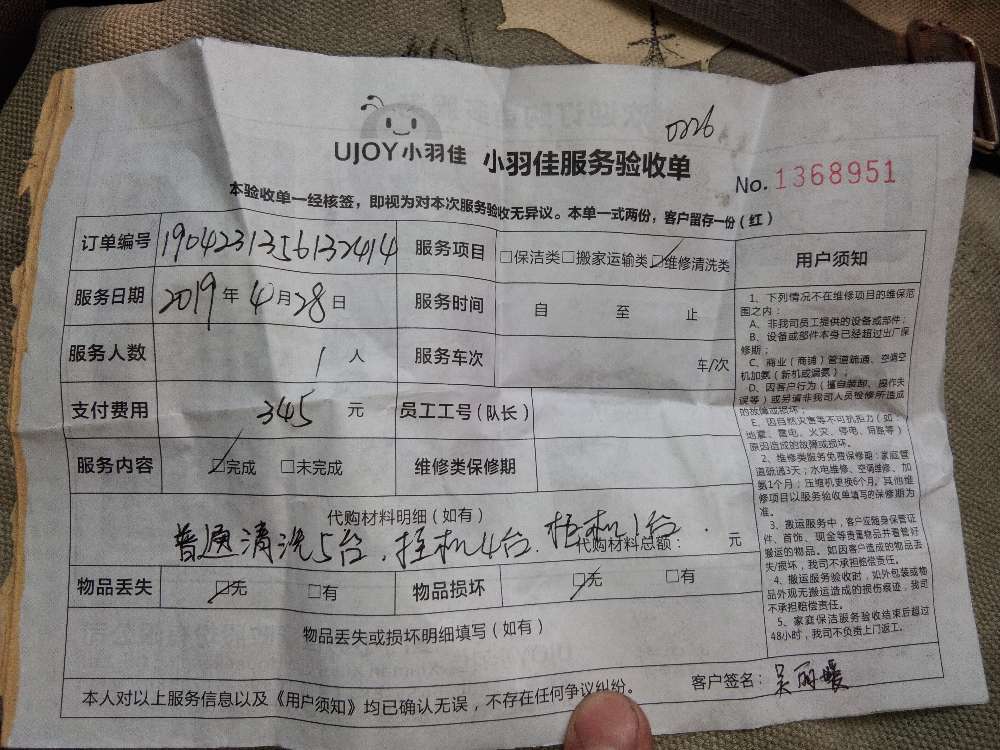 0226
UJOY小羽佳 小羽佳服务验收单
No. 1368951
本验收单一经核签，即视为对本次服务验收无异议。本单一式两份，客户留存一份（红）
订单编号 1904231356132414 服务项目 □保洁类□搬家运输类☑维修清洗类
服务日期 2019年4月28日 服务时间 自 至 止
服务人数 1人 服务车次 车/次
支付费用 345元 员工工号（队长）
服务内容 ☑完成 □未完成 维修类保修期
代购材料明细（如有）
普通清洗5台、挂机4台、柜机1台.
代购材料总额： 元
物品丢失 ☑无 □有 物品损坏 ☑无 □有
物品丢失或损坏明细填写（如有）
本人对以上服务信息以及《用户须知》均已确认无误，不存在任何争议纠纷。
用户须知
1、下列情况不在维修项目的维保范
围之内：
A、非我司员工提供的设备或部件；
B、设备或部件本身已经超过出厂保
修期；
C、商业（商铺）管道疏通、空调空
机加氟（新机或漏氟）；
D、因客户行为（擅自装卸、操作失
误等）或另请非我司人员检修所造成
的故障或损坏；
E、因自然灾害等不可抗拒力（如
地震、雷电、火灾、停电、短路等）
原因造成的故障或损坏。
2、维修类服务免费保修期：家庭管
道疏通3天；水电维修、空调维修、加
氨1个月；压缩机更换6个月。其他维
修项目以服务验收单填写的保修期为
准。
3、搬运服务中，客户应随身保管证
件、首饰、现金等贵重物品并看管好
搬运的物品。如因客户造成的物品丢
失/损坏，我司不承担赔偿责任。
4、搬运服务验收时，如外包装或物
品外观无搬运造成的损伤痕迹，我司
不承担赔偿责任。
5、家庭保洁服务验收结束后超过
48小时，我司不负责上门返工。
客户签名：吴丽媛